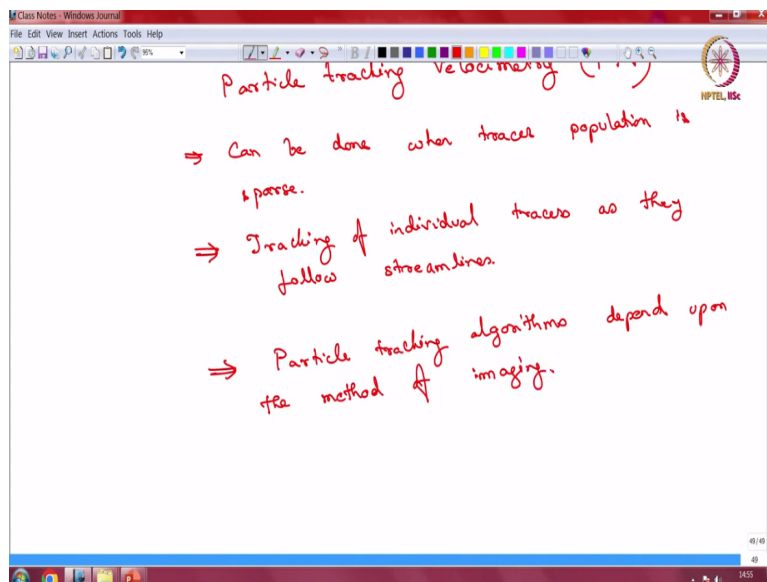 Class Notes - Windows Journal
File Edit View Insert Actions Tools Help
95%
B I
NPTEL, IISc
Particle tracking Velocimetry
⇒ Can be done when tracer population is
sparse.
⇒ Tracking of individual tracers as they
follow streamlines.
⇒ Particle tracking algorithms depend upon
the method of imaging.
49/49
49
1455